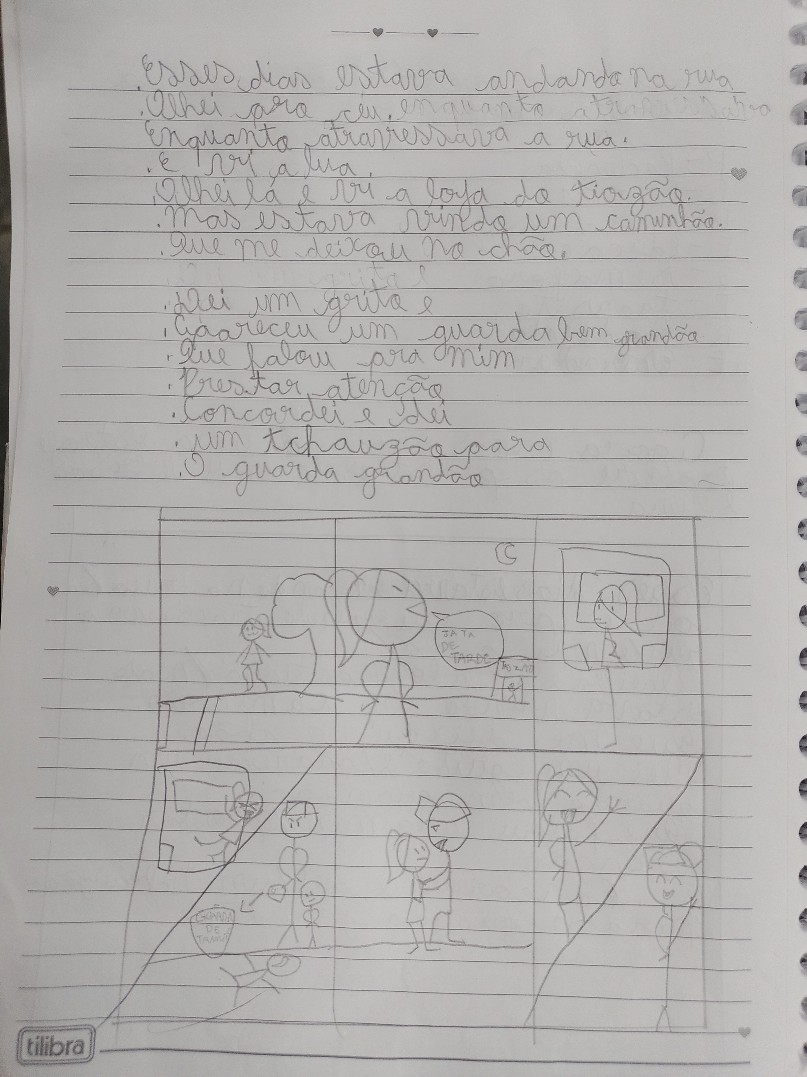 .Esses dias estava andando na rua
.Olhei pro céu. enquanto atravessava
Enquanto atravessava a rua.
.E vi a lua.
.Olhei lá e vi a loja do tiozão.
.Mas estava vindo um caminhão.
.Que me deixou no chão.
.Dei um grito e
.Apareceu um guarda bem grandão
.Que falou para mim
.Prestar atenção
.Concordei e dei
.um tchauzão para
.O guarda grandão
JA TA
DE
TARDE
GUARDA
DE
tilibra